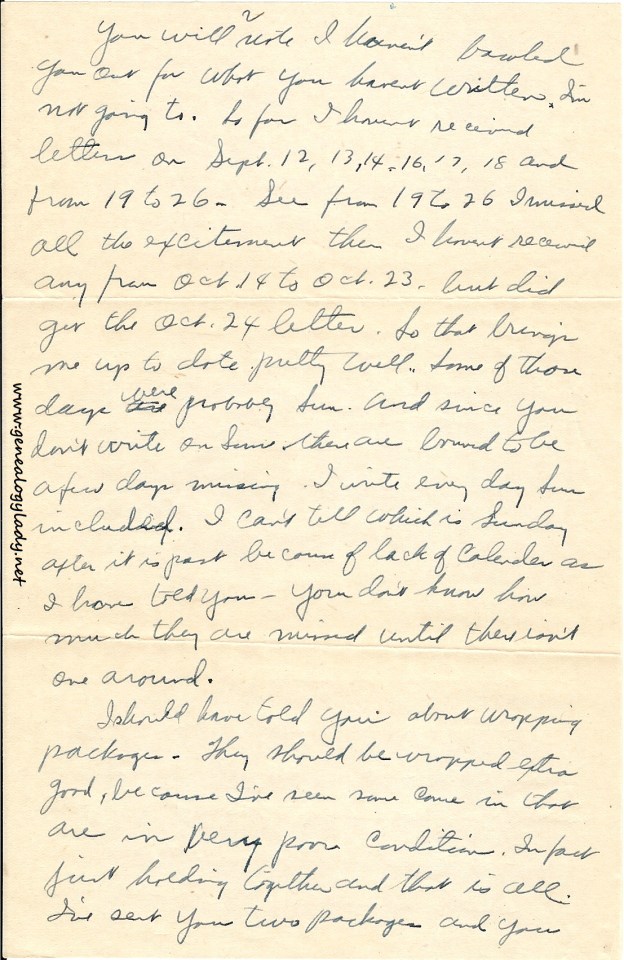 2
You will note I haven't bawled
you out for what you havent written. I'm
not going to. So far I havent received
letters on Sept. 12, 13, 14 - 16, 17, 18 and
from 19 to 26 - See from 19 to 26 I missed
all the excitement then I havent received
any from Oct. 14 to Oct. 23 - but did
get the Oct. 24 letter. So that brings
me up to date pretty well. Some of those
days were probably Sun. And since you
don't write on Sun. there are bound to be
a few days missing. I write every day Sun
included. I can't tell which is Sunday
after it is past because of lack of Calender as
I have told you - You don't know how
much they are missed until there isn't
one around.
I should have told you about wrapping
packages - They should be wrapped extra
good, because I've seen some come in that
are in very poor condition. In fact
just holding together and that is all.
I've sent you two packages and you
www.genealogylady.net